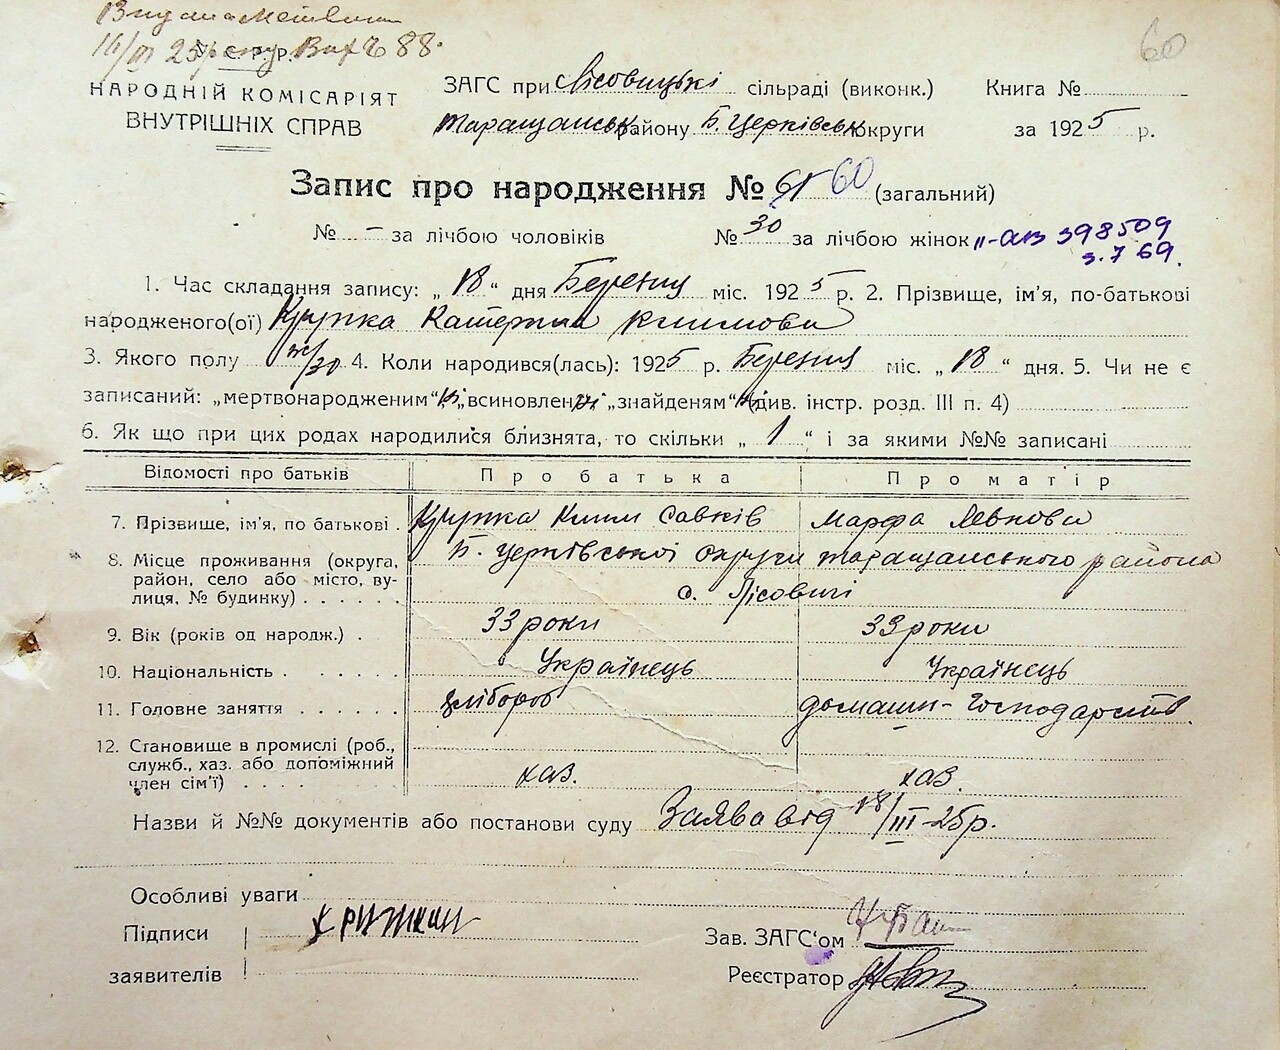 Видана Метвика
16/III 25 року Вих № 88.
У. С. Р. Р.
60
НАРОДНІЙ КОМІСАРІЯТ
ВНУТРІШНІХ СПРАВ
ЗАГС при Лісовицькі сільраді (виконк.) Книга №
Таращанськ району Б. Церківськ округи за 1925 р.
Запис про народження № 61 60 (загальний)
№ – за лічбою чоловіків № 30 за лічбою жінок II-АВ 398509
3.7 69.
1. Час складання запису: „18“ дня Березня міс. 1925 р. 2. Прізвище, ім'я, по-батькові
народженого(ої) Кружка Катерина Климова
3. Якого полу ж/30 4. Коли народився(лась): 1925 р. Березня міс. „18“ дня. 5. Чи не є
записаний: „мертвонародженим“ ні „всиновлен ні „знайденям“ ні (див. інстр. розд. III п. 4)
6. Як що при цих родах народилися близнята, то скільки „1“ і за якими №№ записані
Відомості про батьків Про батька Про матір
7. Прізвище, ім'я, по батькові . Кружка Клим Савків Марфа Левкова
8. Місце проживання (округа, Б. Церківської округи Таращанського района
район, село або місто, ву-
лиця, № будинку) . . . . . . с. Лісовичі
9. Вік (років од народж.) . 33 роки 33 роки
10. Національність . . . . . . Українець Українець
11. Головне заняття . . . . . . хлібороб домашн- господарств.
12. Становище в промислі (роб.,
служб., хаз. або допоміжний
член сім'ї) . . . . . . . . хаз. хаз.
Назви й №№ документів або постанови суду Заява від 18/III-25р.
Особливі уваги
Підписи
заявителів
Зав. ЗАГС'ом
Реєстратор